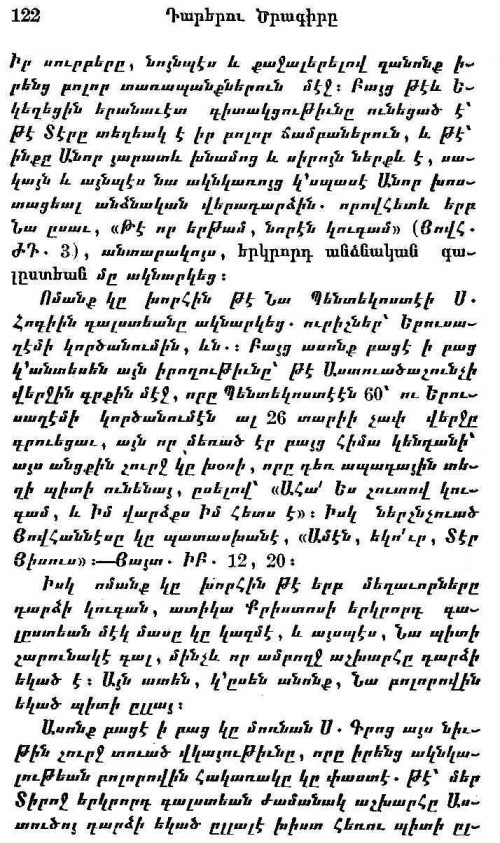 122 Դարերու Ծրագիրը
Իր սուրբերը, նոյնպէս և քաջալերելով զանոնք ի-
րենց բոլոր տառապանքներուն մէջ։ Բայց թէև Ե-
կեղեցին երանաւէտ գիտակցութիւնը ունեցած է՝
թէ Տէրը տեղեակ է իր բոլոր ճամբաներուն, և թէ՝
ինքը Անոր յարատև խնամոց և սիրոյն ներքև է, սա-
կայն և այնպէս նա ակնկառոյց կ՚սպասէ Անոր խոս-
տացեալ անձնական վերադարձին. որովհետև երբ
Նա ըսաւ, «Թէ որ երթամ, նորէն կուգամ» (Յովհ.
ԺԴ. 3), անտարակոյս, երկրորդ անձնական գա-
լըստեան մը ակնարկեց։
Ոմանք կը խորհին թէ Նա Պենտեկոստէի Ս.
Հոգիին գալստեանը ակնարկեց. ուրիշներ՝ Երուսա-
ղէմի կործանումին, ևն.։ Բայց ասոնք բացէ ի բաց
կ՚անտեսեն այն իրողութիւնը՝ թէ Աստուածաշունչի
վերջին գրքին մէջ, որը Պենտեկոստէէն 60՝ ու Երու-
սաղէմի կործանումէն ալ 26 տարիի չափ վերջը
գրուեցաւ, այն որ մեռած էր բայց հիմա կենդանի՝
այս անցքին շուրջ կը խօսի, որը դեռ ապագային տե-
ղի պիտի ունենայ, ըսելով՝ «Ահա՛ Ես շուտով կու-
գամ, և Իմ վարձքս Իմ հետս է»։ Իսկ ներշնչուած
Յովհաննէսը կը պատասխանէ, «Ամէն, եկո՛ւր, Տէր
Յիսուս»։—Յայտ. ԻԲ. 12, 20։
Իսկ ոմանք կը խորհին թէ երբ մեղաւորները
դարձի կուգան, ատիկա Քրիստոսի երկրորդ գա-
լըստեան մէկ մասը կը կազմէ, և այսպէս, Նա պիտի
շարունակէ գալ, մինչև որ ամբողջ աշխարհը դարձի
եկած է։ Այն ատեն, կ՚ըսեն անոնք, Նա բոլորովին
եկած պիտի ըլլայ։
Ասոնք բացէ ի բաց կը մոռնան Ս. Գրոց այս նիւ-
թին շուրջ տուած վկայութիւնը, որը իրենց ակնկա-
լութեան բոլորովին հակառակը կը փաստէ. թէ՝ մեր
Տիրոջ երկրորդ գալստեան ժամանակ աշխարհը Աս-
տուծոյ դարձի եկած ըլլալէ խիստ հեռու պիտի ըլ-